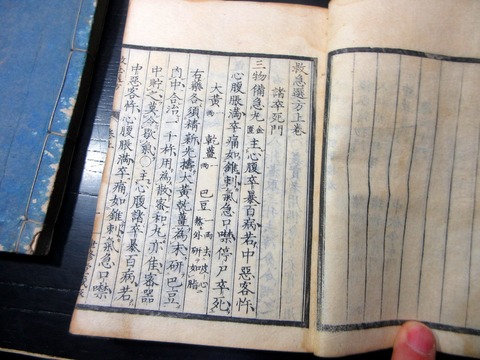 救急選方上卷
諸卒死門
三物備急丸 金匱 主心腹卒暴百病若中惡客忤
心腹脹滿卒痛如錐刺氣急口噤停尸卒死
大黃 兩 乾薑 兩 巴豆 一兩 去皮心 熬外研如脂
右藥各須精新先擣大黃乾薑為末研巴豆
內中合治一千杵用為散蜜和丸亦佳密器
中貯之莫令歇氣○主心腹諸卒暴百病若
中惡客忤心腹脹滿卒痛如錐刺氣急口噤